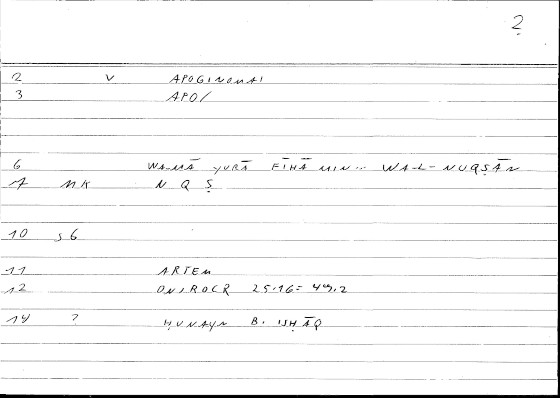 2
2 V APOGINOMAI
3 APO/
6 WA-MĀ YURĀ FĪHĀ MIN... WA-L-NUQṢĀN
7 MK N Q Ṣ
10 S6
11 ARTEM
12 ONIROCR 25.16 = 49.2
14 ? ḤUNAYN B. ISḤĀQ